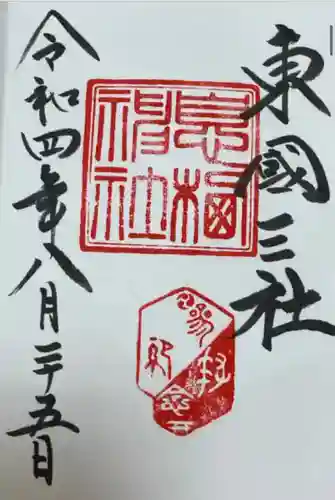 東國三社
息栖
神社
令和四年八月二十五日